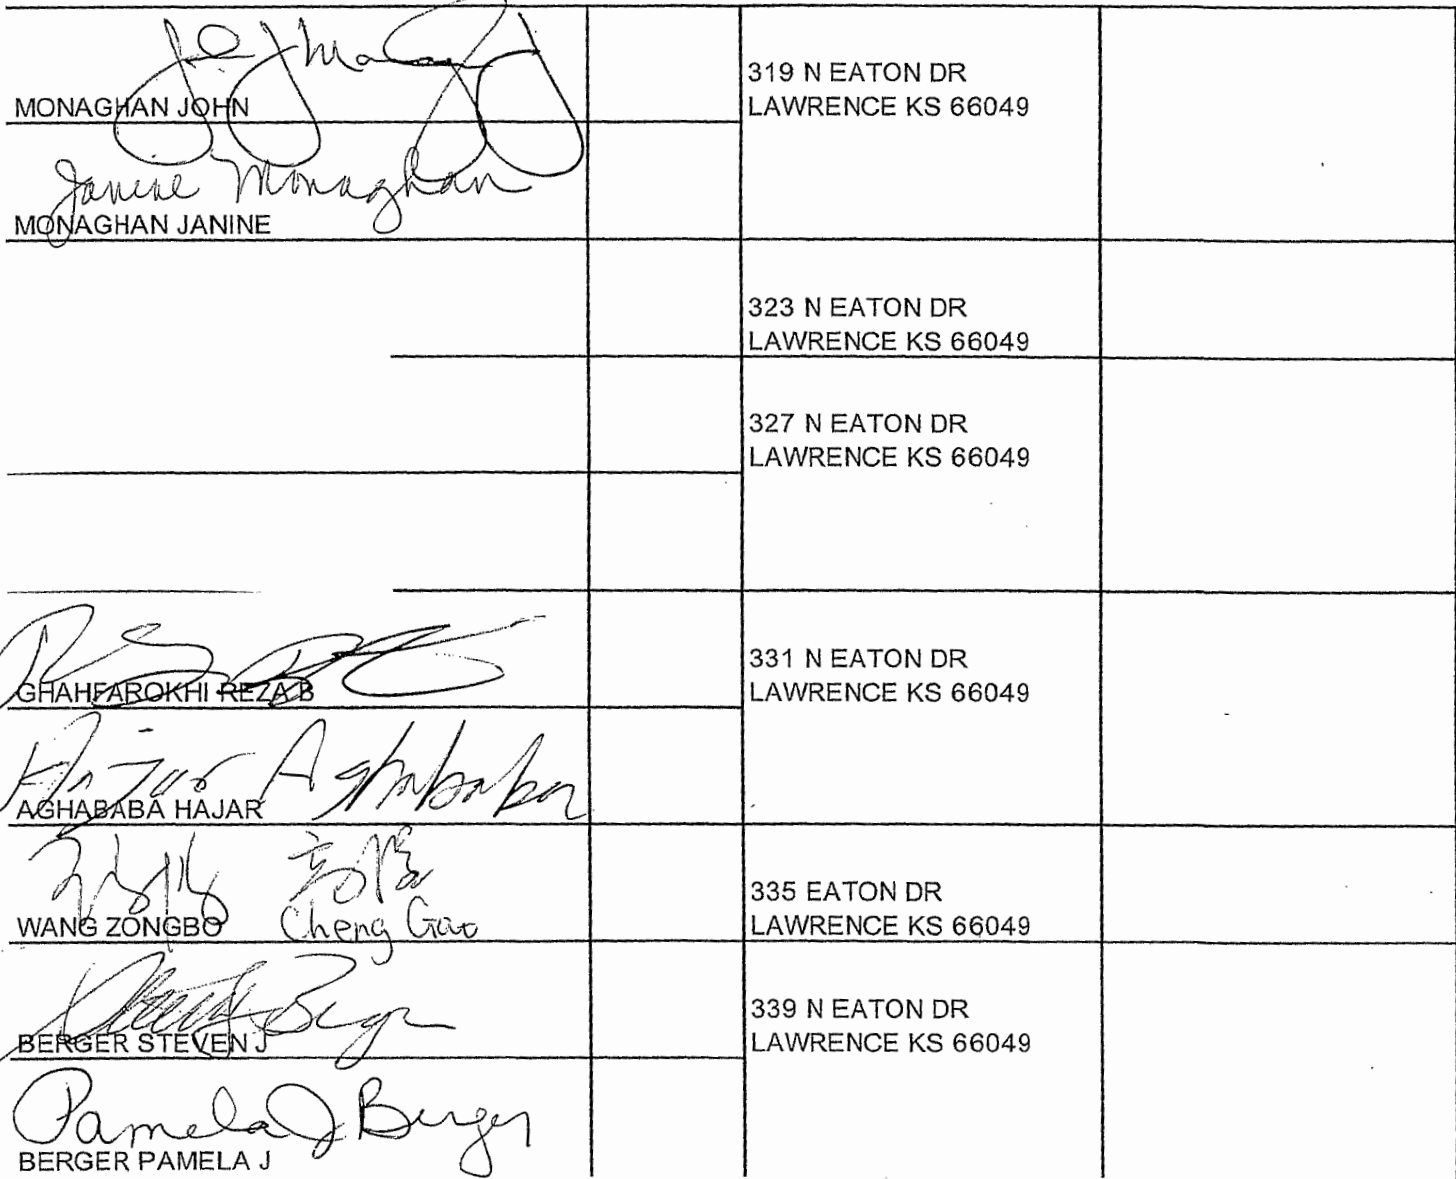 MONAGHAN JOHN
319 N EATON DR
LAWRENCE KS 66049
Janine Monaghan
MONAGHAN JANINE
323 N EATON DR
LAWRENCE KS 66049
327 N EATON DR
LAWRENCE KS 66049
GHAHFAROKHI REZA B
331 N EATON DR
LAWRENCE KS 66049
Hajar Aghababa
AGHABABA HAJAR
WANG ZONGBO
Cheng Gao
335 EATON DR
LAWRENCE KS 66049
Berger
BERGER STEVEN J
339 N EATON DR
LAWRENCE KS 66049
Pamela J Berger
BERGER PAMELA J